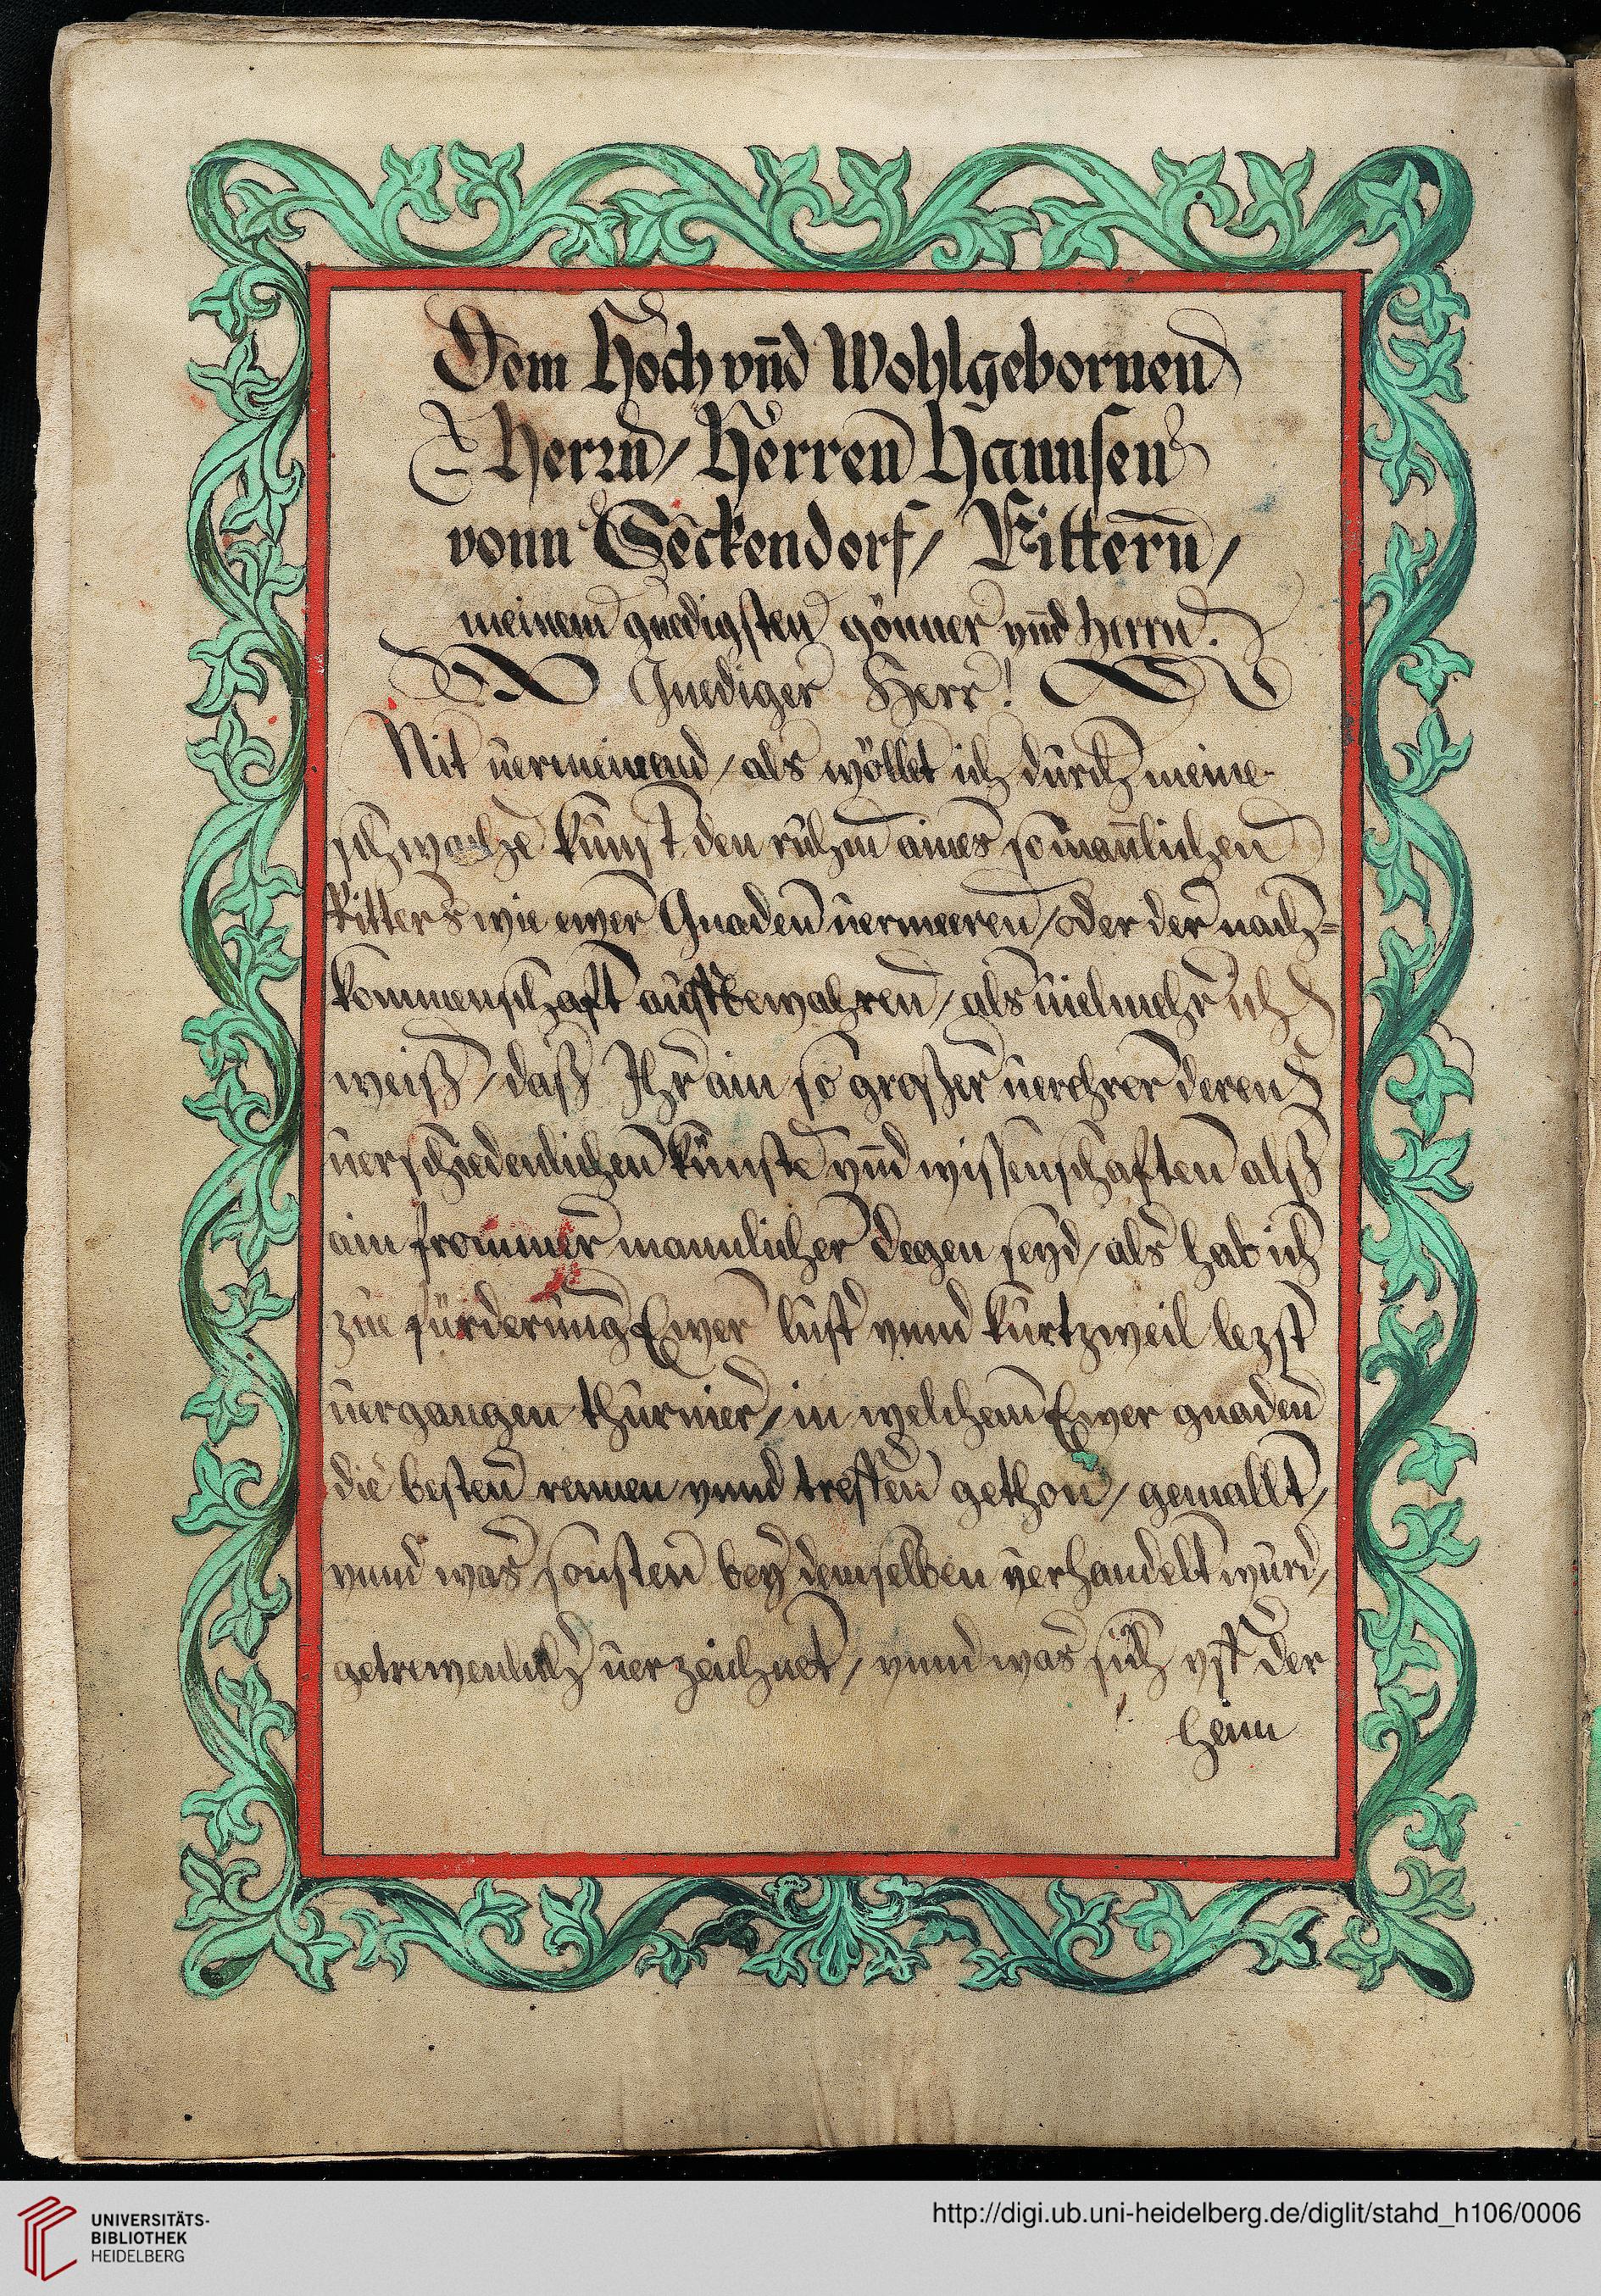 Dem Hoch vnd Wohlgebornen
Herrn/ Herren Hannsen
vonn Seckendorf/ Rittern/
meinem gnedigsten gönner vnd herrn.
Gnediger Herr!
Nit vermeinend/ als wöllet ich durch meine
schwache kunst den ruhm aines so manlichen
Ritters wie ewer Gnaden vermeeren/ oder der nach=
kommenschafft auffbewahren/ als vielmehr ich
weiß/ daß Ihr ain so großer verehrer deren
verschiedenlichen künste vnd wissenschafften alß
ain frommer mannlicher degen seyd/ als hab ich
zue fürderung Ewer lust vnnd kurtzweil lezst
vergangen thurnier/ in welchem Ewer gnaden
die besten rennen vnnd treffen gethon/ gemallt/
vnnd was sonsten bey demselben verhandelt wurd/
getrewenlich verzeichnet/ vnnd was sich vff der
heim
UNIVERSITÄTS-
BIBLIOTHEK
HEIDELBERG
http://digi.ub.uni-heidelberg.de/diglit/stahd_h106/0006